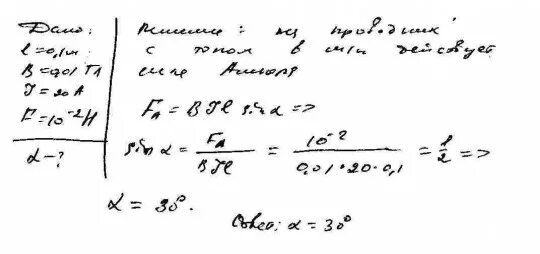 Дано:
l = 0,1 м
B = 0,01 Тл
I = 20 А
F = 10⁻² Н
α - ?
Решение: на проводник
с током в м/п действует
сила Ампера
F_A = BIl sin α =>
sin α = F_A / BIl = 10⁻² / 0,01 * 20 * 0,1 = 1/2 =>
α = 30°.
Ответ: α = 30°